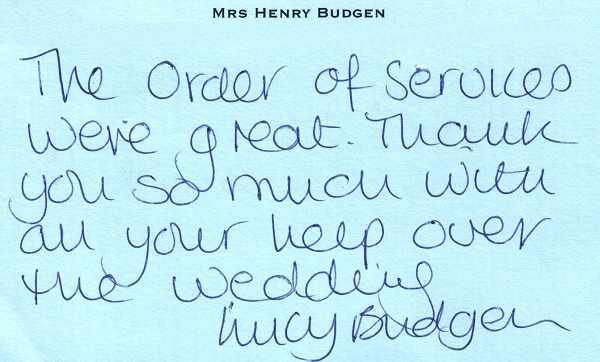 MRS HENRY BUDGEN
The Order of Services
were great. Thank
you so much with
all your help over
the wedding
Lucy Budgen